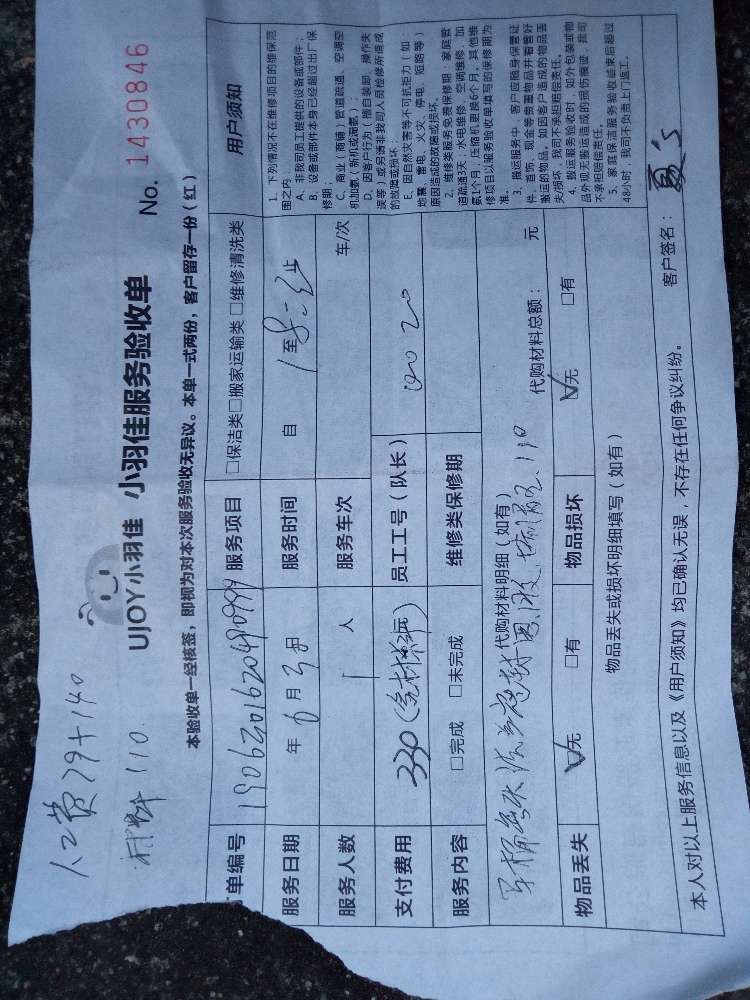 人工费79+140
材料110
UJOY小羽佳 小羽佳服务验收单 No. 1430846
本验收单一经核签，即视为对本次服务验收无异议。本单一式两份，客户留存一份（红）
单编号
服务项目 □保洁类□搬家运输类□维修清洗类
服务日期 年 6月30日 服务时间 自 至 止
服务人数 1 人 服务车次 车/次
支付费用 330 员工工号（队长）
服务内容 □完成 □未完成 维修类保修期
代购材料明细（如有） 110 代购材料总额： 元
物品丢失 ☑无 □有 物品损坏 ☑无 □有
物品丢失或损坏明细填写（如有）
用户须知
1. 下列情况不在维修项目的维保范
围之内
A. 非我司员工提供的设备或部件；
B. 设备或部件本身已经超过出厂保
修期；
C. 商业（商铺）管道疏通，空调空
机加氨（新机或漏氨）；
D. 因客户行为（擅自装卸、操作失
误等）或另请非我司人员检修所造成
的故障或损坏
E. 因自然灾害等不可抗拒力（如：
地震、雷电、火灾、停电、短路等）
原因造成的故障或损坏。
2. 维修类服务免费保修期：家庭管
道疏通3天，水电维修、空调维修、加
氨1个月，压缩机更换6个月，其他维
修项目以服务验收单填写的保修期为
准。
3. 搬运服务中，客户应随身保管证
件、首饰、现金等贵重物品并看管好
搬运的物品，如因客户造成的物品丢
失/损坏，我司不承担赔偿责任。
4. 搬运服务验收时，如外包装或物
品外观无搬运造成的损伤痕迹，我司
不承担赔偿责任。
5. 家庭保洁服务验收结束后超过
48小时，我司不负责上门返工。
本人对以上服务信息以及《用户须知》均已确认无误，不存在任何争议纠纷。 客户签名：